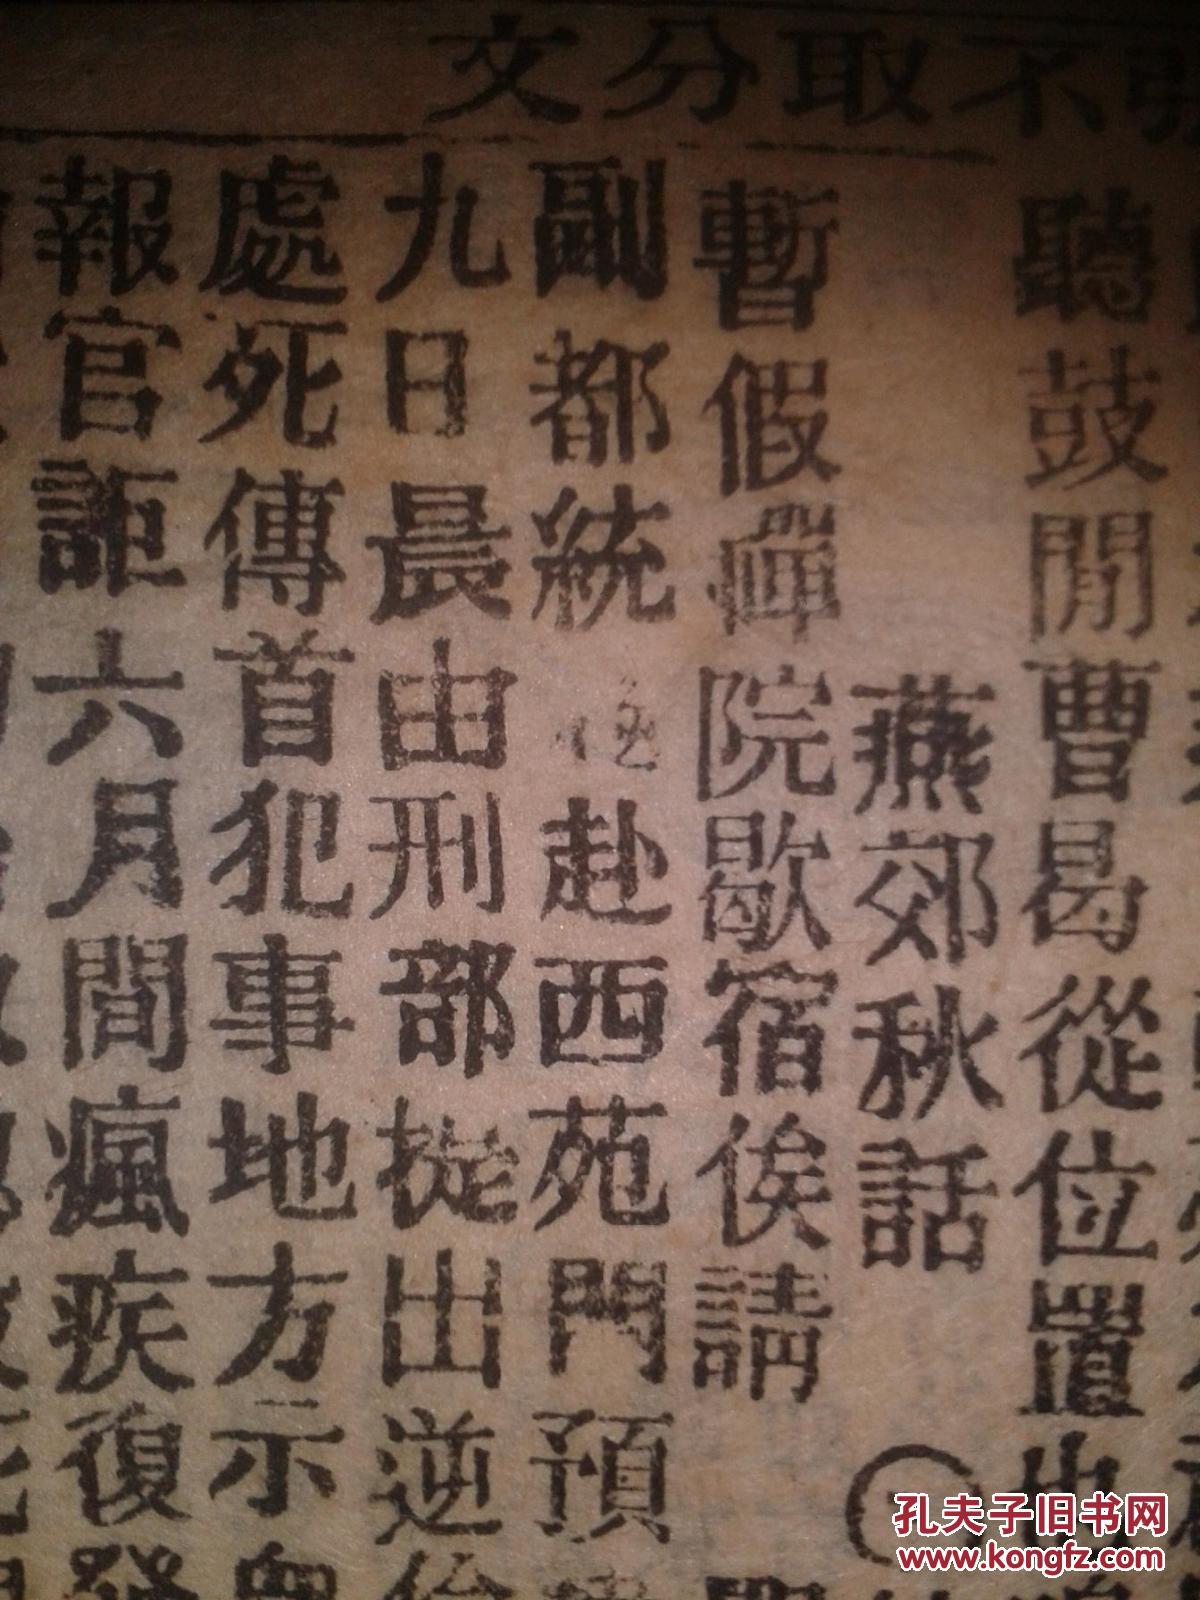 不取分文
聽鼓閒曹易從位置也
燕郊秋話
暫假禪院歇宿俟請
副都統 赴西苑門預
九日晨由刑部提出逆
處死傳首犯事地方示衆
報官詎六月間瘋疾復發
孔夫子旧书网
www.kongfz.com